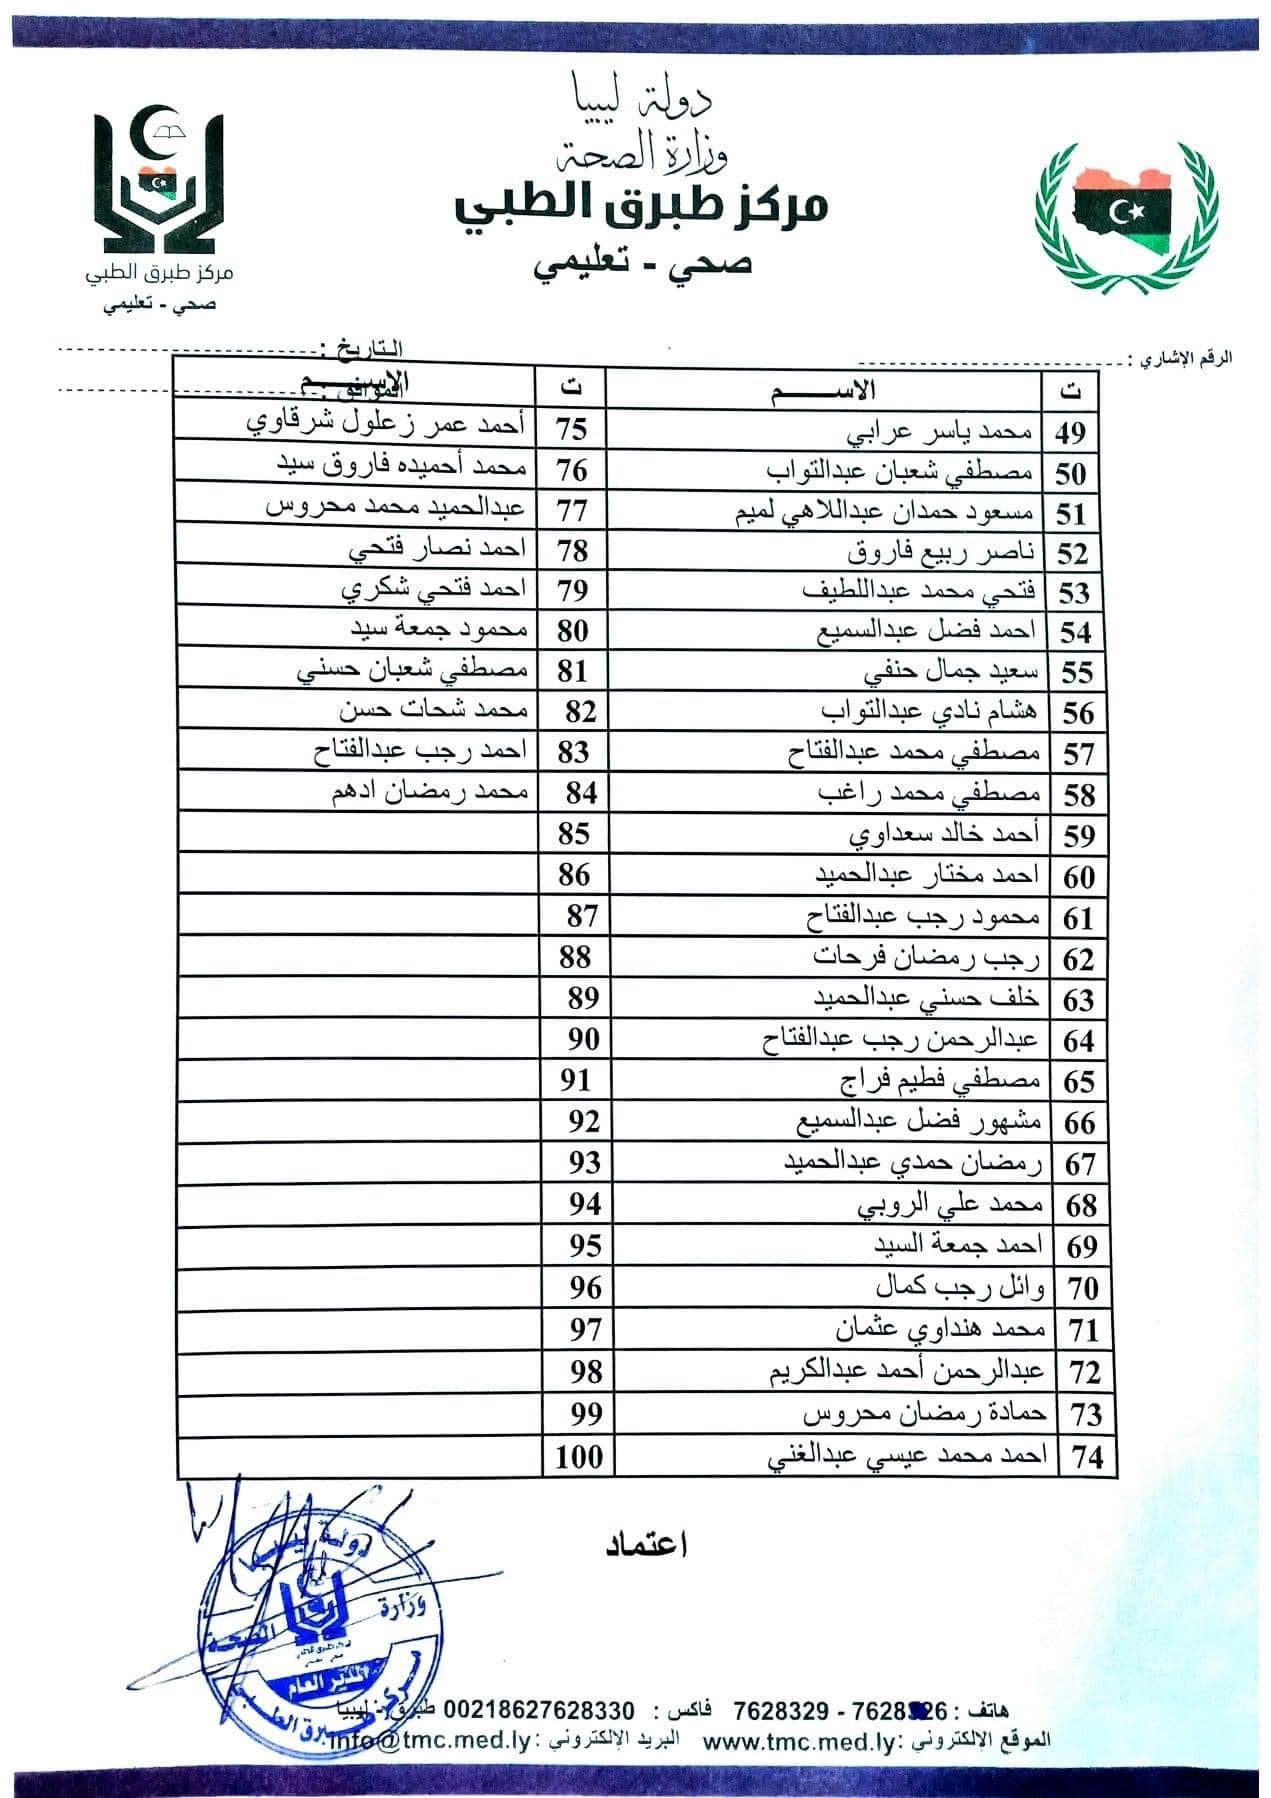 دولة ليبيا
وزارة الصحة
مركز طبرق الطبي
صحي - تعليمي
مركز طبرق الطبي
صحي - تعليمي
الرقم الإشاري :
التاريخ :
الموافق :
ت الاســـــم ت الاســـــم
49 محمد ياسر عرابي 75 أحمد عمر زعلول شرقاوي
50 مصطفي شعبان عبدالتواب 76 محمد أحميده فاروق سيد
51 مسعود حمدان عبداللاهي لميم 77 عبدالحميد محمد محروس
52 ناصر ربيع فاروق 78 احمد نصار فتحي
53 فتحي محمد عبداللطيف 79 احمد فتحي شكري
54 احمد فضل عبدالسميع 80 محمود جمعة سيد
55 سعيد جمال حنفي 81 مصطفي شعبان حسني
56 هشام نادي عبدالتواب 82 محمد شحات حسن
57 مصطفي محمد عبدالفتاح 83 احمد رجب عبدالفتاح
58 مصطفي محمد راغب 84 محمد رمضان ادهم
59 أحمد خالد سعداوي 85
60 احمد مختار عبدالحميد 86
61 محمود رجب عبدالفتاح 87
62 رجب رمضان فرحات 88
63 خلف حسني عبدالحميد 89
64 عبدالرحمن رجب عبدالفتاح 90
65 مصطفي فطيم فراج 91
66 مشهور فضل عبدالسميع 92
67 رمضان حمدي عبدالحميد 93
68 محمد علي الروبي 94
69 احمد جمعة السيد 95
70 وائل رجب كمال 96
71 محمد هنداوي عثمان 97
72 عبدالرحمن أحمد عبدالكريم 98
73 حمادة رمضان محروس 99
74 احمد محمد عيسي عبدالغني 100
اعتماد
دولة ليبيا
وزارة الصحة
المدير العام
مركز طبرق الطبي
هاتف : 7628326 - 7628329 فاكس : 00218627628330 طبرق - ليبيا
الموقع الإلكتروني : www.tmc.med.ly البريد الإلكتروني : info@tmc.med.ly